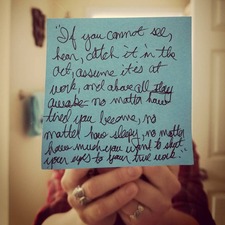 "If you cannot see,
hear, catch it in the
act, assume it's at
work, and above all stay
awake - no matter how
tired you become, no
matter how sleepy, no matter
how much you want to shut
your eyes to your true work."